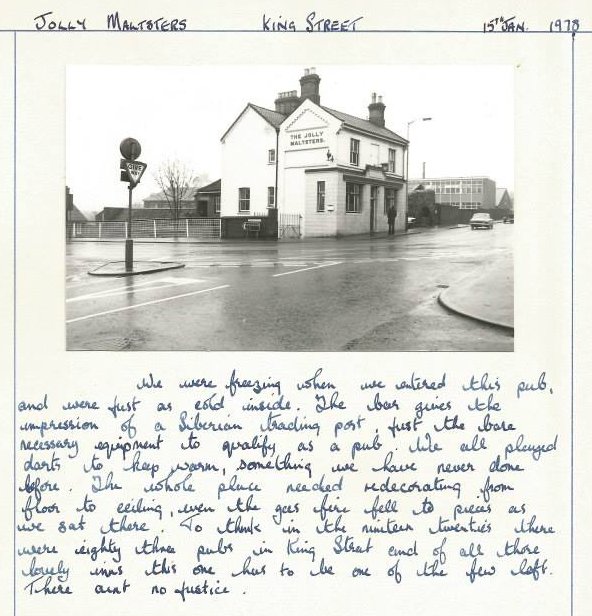 JOLLY MALTSTERS KING STREET 15TH JAN. 1978
THE JOLLY
MALTSTERS.
GIVE
WAY
We were freezing when we entered this pub,
and were just as cold inside. The bar gives the
impression of a Siberian trading post, just the bare
necessary equipment to qualify as a pub. We all played
darts to keep warm, something we have never done
before. The whole place needed redecorating from
floor to ceiling, even the gas fire fell to pieces as
we sat there. To think in the nineteen twenties there
were eighty three pubs in King Street and of all those
lovely inns this one has to be one of the few left.
There aint no justice.